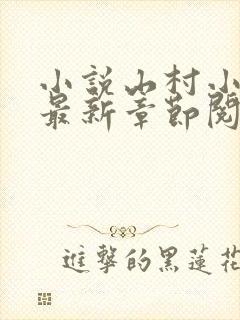 小説山村小
最新章節閱
進擊的黑蓮花